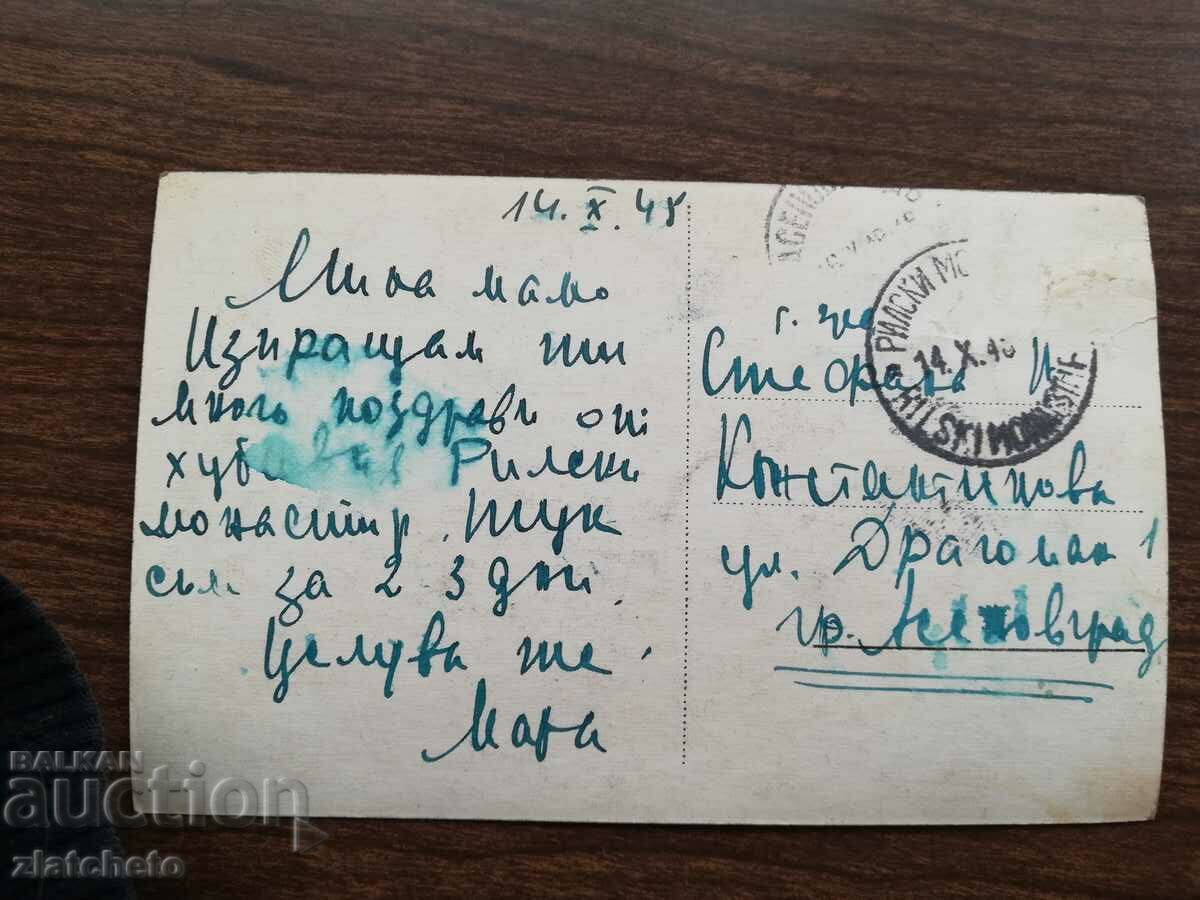 14.X.48
Мила мамо
Изпращам ти
много поздрави от
хубавия Рилски
монастир. Тук
съм за 2 3 дни.
Целува те.
Мара
г-жа
Стефана И
Константинова
ул. Драгоман 1
гр. Асеновград
АСЕНО
РИЛСКИ МО
14.X.48
SKI MON
BALKAN
auction
zlatcheto